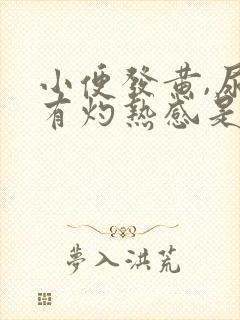 小便發黃,尿
有灼熱感是
夢入洪荒